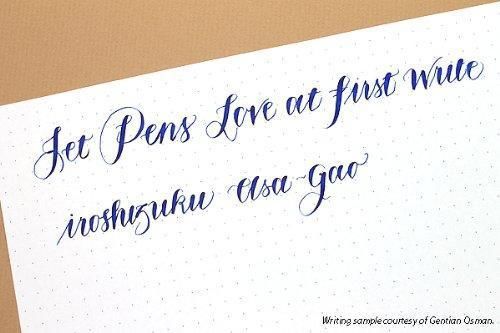 Jet Pens Love at first write
iroshizuku Asa-Gao
Writing sample courtesy of Gentian Osman.